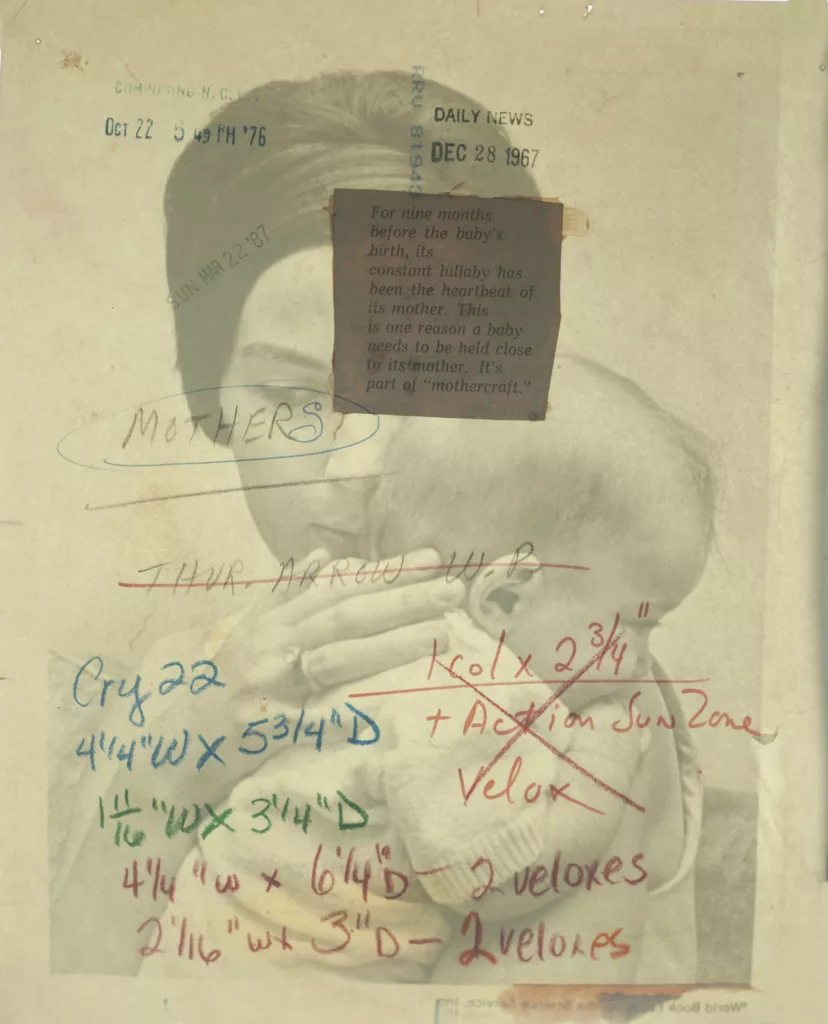 COMPOSING
OCT 22 5 49 PM '76
DAILY NEWS
DEC 28 1967
SUN MAR 22 '87
For nine months
before the baby's
birth, its
constant lullaby has
been the heartbeat of
its mother. This
is one reason a baby
needs to be held close
to its mother. It's
part of "mothercraft."
MOTHERS
THUR. ARROW W.P.
1 col x 2 3/4"
+ Action Sun Zone
Velox
Cry 22
4 1/4" W X 5 3/4" D
1 11/16 "W X 3 1/4" D
4 1/4 "W x 6 1/4" D — 2 veloxes
2 1/16" W x 3" D — 2 veloxes
"World Book Science Service, Inc.